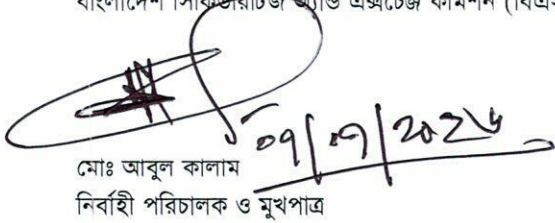 বাংলাদেশ সিকিউরিটিজ অ্যান্ড এক্সচেঞ্জ কমিশন (বিএস
০৭/০৭/২০২৬
মোঃ আবুল কালাম
নির্বাহী পরিচালক ও মুখপাত্র